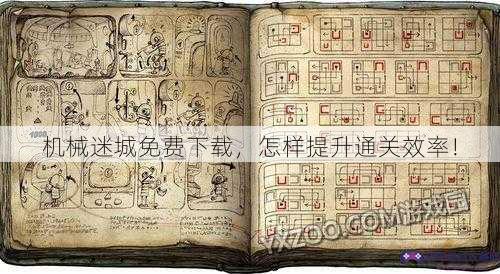 机械迷城免费下载，怎样提升通关效率！
YXZOO.COM游戏园